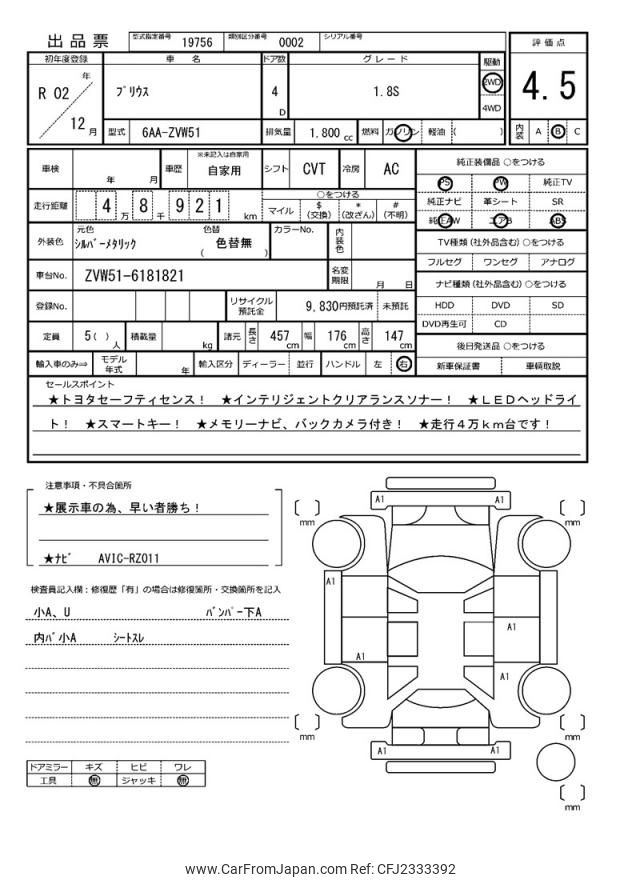 出品票
型式指定番号 19756 類別区分番号 0002 シリアル番号
初年度登録 車名 ドア数 グレード 駆動 評価点
R 02 年 12 月
プリウス 4 D 1.8S 2WD 4WD 4.5
型式 6AA-ZVW51 排気量 1,800 cc 燃料 ガソリン 軽油 ( ) 内装 A B C
車検 年 月 車歴 ※未記入は自家用 自家用 シフト CVT 冷房 AC
走行距離 4 万 8 千 9 2 1 km
○をつける
マイル $(交換) *(改ざん) #(不明)
外装色 元色 シルバーメタリック 色替 ( 色替無 ) カラーNo. 内装色
車台No. ZVW51-6181821 名変期限 月 日
登録No. リサイクル預託金 9,830円預託済 未預託
定員 5( )人 積載量 kg 諸元 長さ 457cm 幅 176cm 高さ 147cm
輸入車のみ⇒ モデル年式 年 輸入区分 ディーラー 並行 ハンドル 左 右
純正装備品 ○をつける
PS PW 純正TV
純正ナビ 革シート SR
純正AW エアB ABS
TV種類(社外品含む)○をつける
フルセグ ワンセグ アナログ
ナビ種類(社外品含む)○をつける
HDD DVD SD
DVD再生可 CD
後日発送品 ○をつける
新車保証書 車輌取説
セールスポイント
★トヨタセーフティセンス! ★インテリジェントクリアランスソナー! ★LEDヘッドライ
ト! ★スマートキー! ★メモリーナビ、バックカメラ付き! ★走行4万km台です!
注意事項・不具合箇所
★展示車の為、早い者勝ち!
★ナビ AVIC-RZ011
検査員記入欄:修復歴「有」の場合は修復箇所・交換箇所を記入
小A、U バンパー下A
内バ小A シートスレ
ドアミラー キズ ヒビ ワレ
工具 無 ジャッキ 無
A1 A1
mm mm
A1
A1
A1
A1
mm mm
A1 A1
mm
www.CarFromJapan.com Ref: CFJ2333392